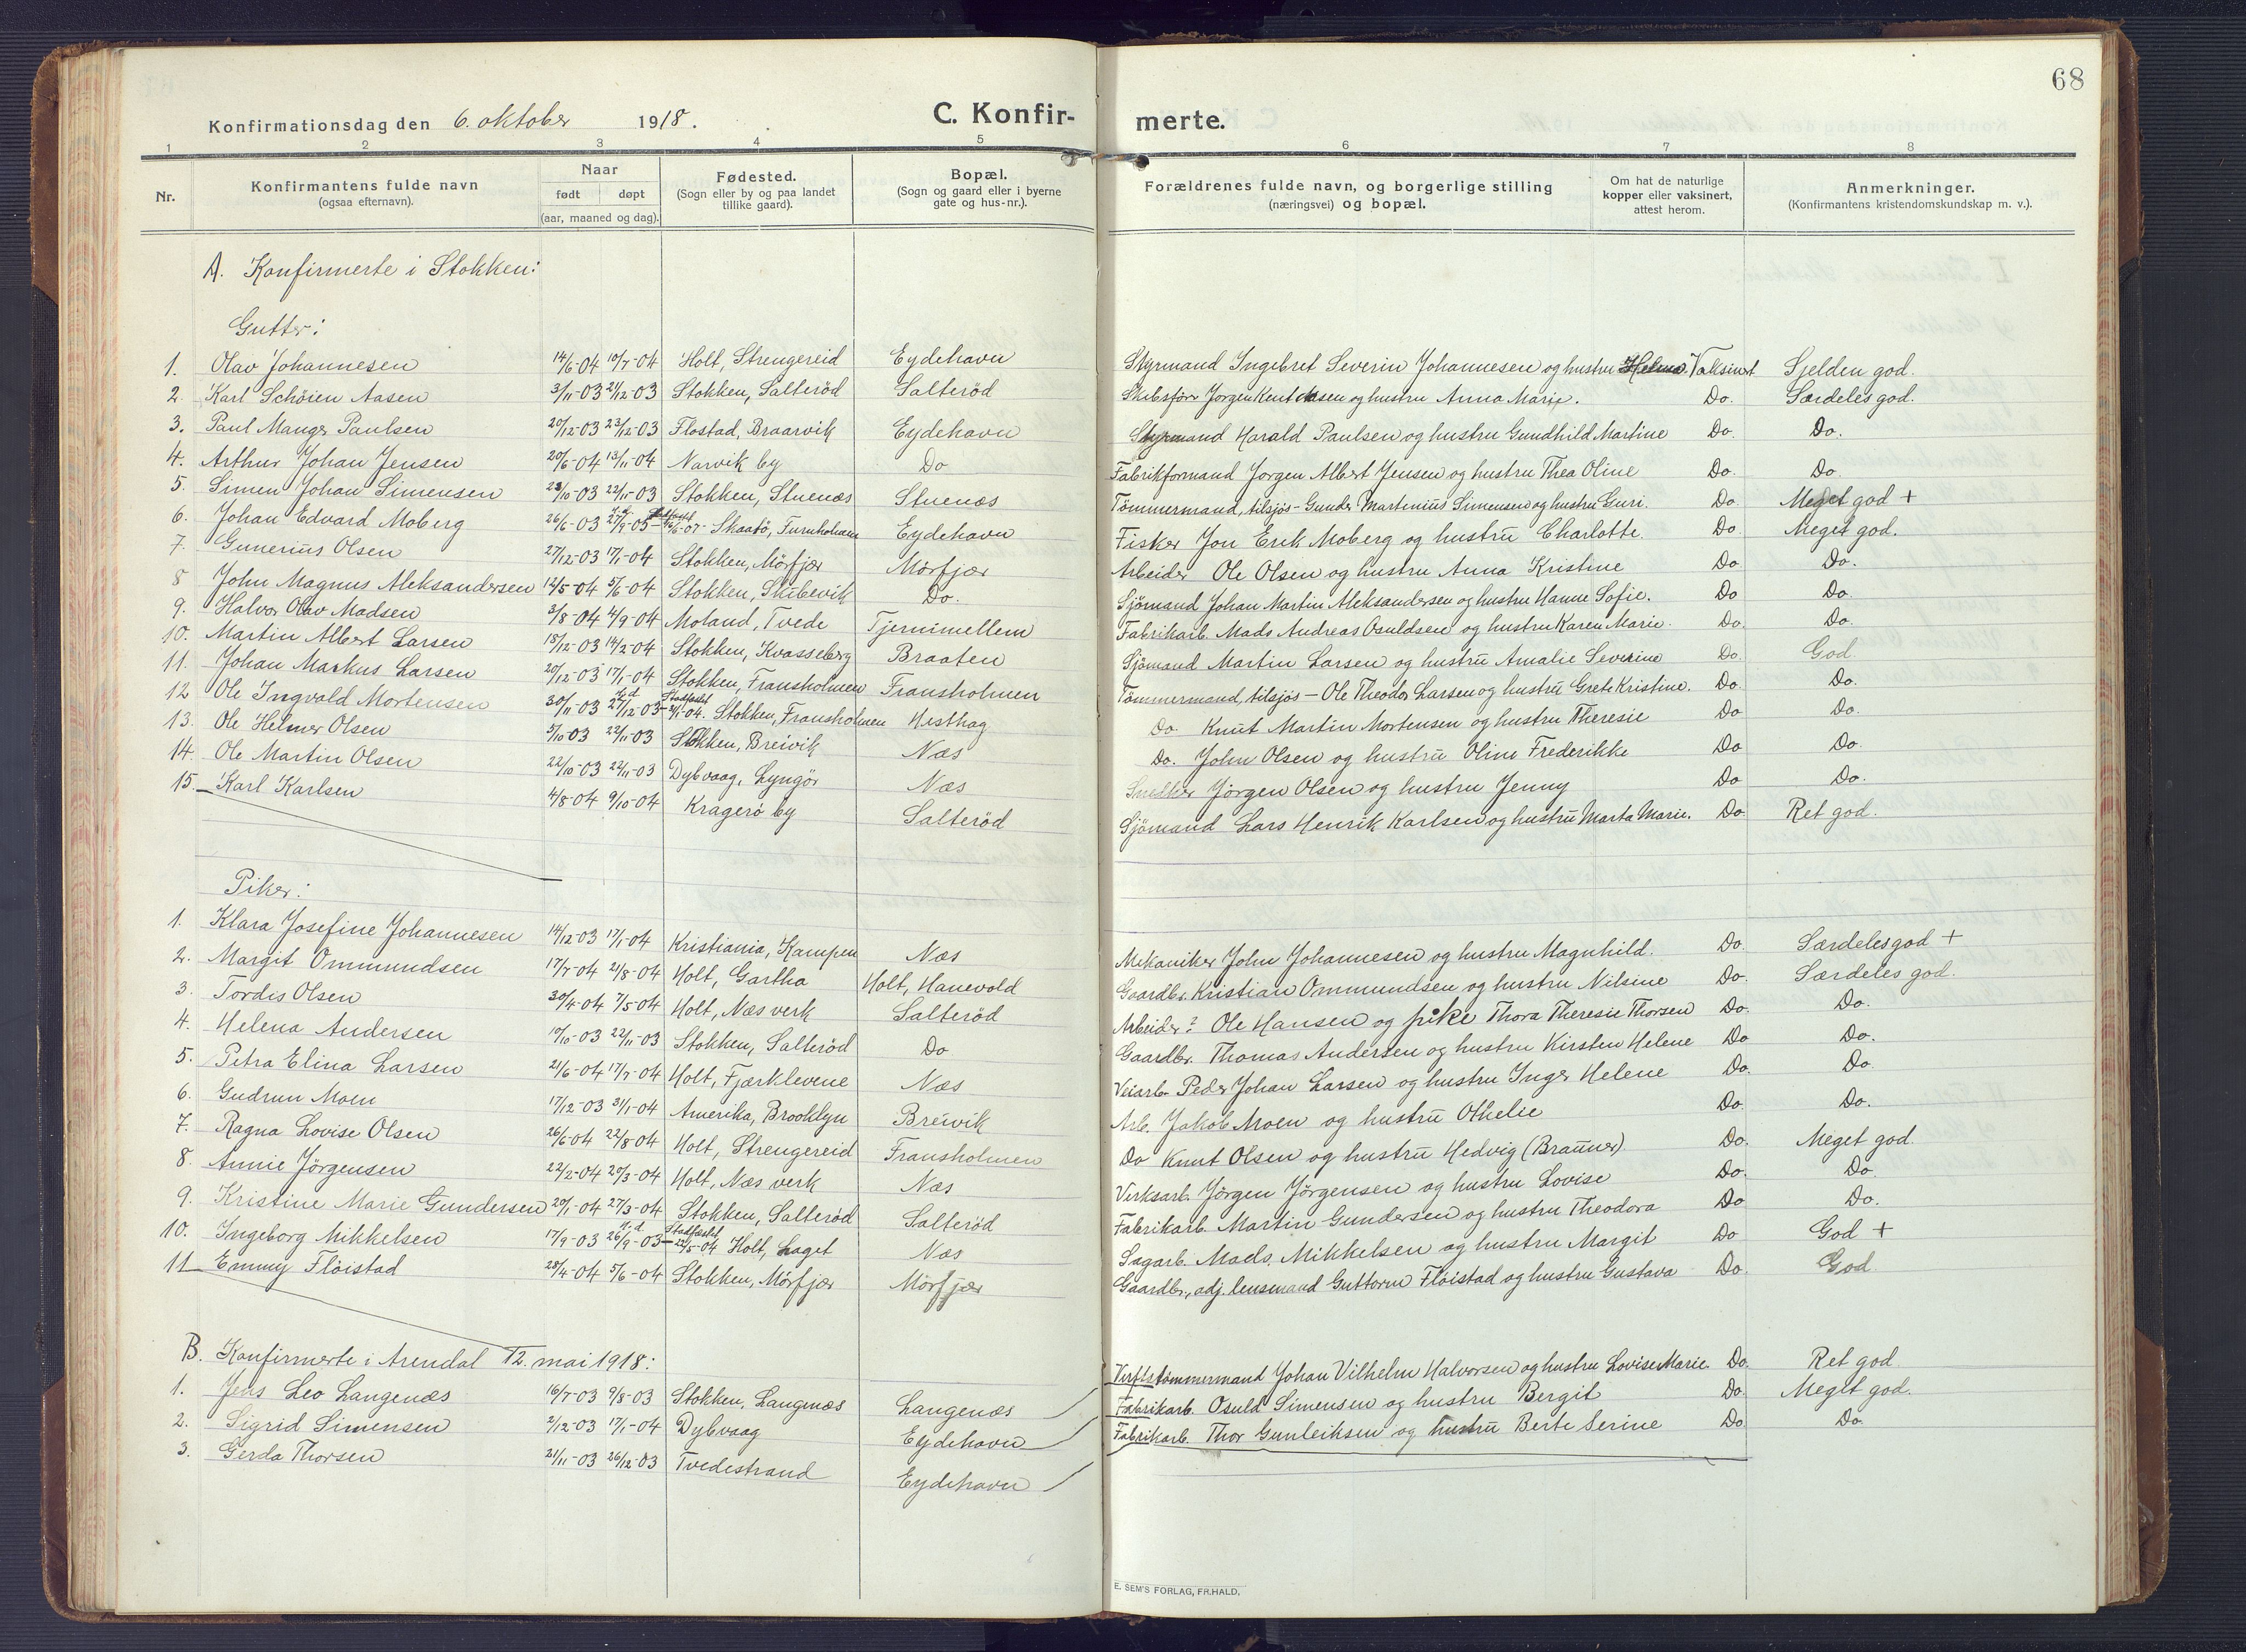 68
Konfirmationsdag den 6. oktober 1918.
C. Konfir- merte.
1 2 3 4 5 6 7 8
Nr.
Konfirmantens fulde navn
(ogsaa efternavn).
Naar
født døpt
(aar, maaned og dag).
Fødested.
(Sogn eller by og paa landet
tillike gaard).
Bopæl.
(Sogn og gaard eller i byerne
gate og hus-nr.).
Forældrenes fulde navn, og borgerlige stilling
(næringsvei) og bopæl.
Om hat de naturlige
kopper eller vaksinert,
attest herom.
Anmerkninger.
(Konfirmantens kristendomskundskap m. v.).
A. Konfirmerte i Stokken:
Gutter:
1. Olav Johannesen 14/6-04 10/7-04 Holt, Strengereid Eydehavn Styrmand Ingebret Severin Johannesen og hustru Helma. Vaksinert Sjelden god.
2. Karl Schöien Aasen 3/11-03 21/12-03 Stokken, Salteröd Salteröd Skibsförer Jorgen Kent Aasen og hustru Anna Marie. Do. Særdeles god.
3. Paul Manger Paulsen 20/12-03 23/12-03 Flostad, Braarvik Eydehavn Styrmand Harald Paulsen og hustru Gundhild Martine Do. Do.
4. Arthur Johan Jensen 20/6-04 13/11-04 Narvik by Do Fabrikformand Jorgen Albert Jensen og hustru Thea Oline Do. Do.
5. Simen Johan Simensen 23/10-03 22/11-03 Stokken, Stuenæs Stuenæs Tömmermand, tilsjös - Gunder Martenius Simensen og hustru Guri. Do. Meget god +
6. Johan Edvard Moberg 26/6-03 H.d. 27/9-05 - 16/6-07 - Skaatö, Furuholmen Eydehavn Fisker Jon Erik Moberg og hustru Charlotte. Do. Meget god.
7. Gunerius Olsen 27/12-03 17/1-04 Stokken, Mörfjær Mörfjær Arbeider Ole Olsen og hustru Anna Kristine Do Do.
8 John Magnus Aleksandersen 12/5-04 5/6-04 Stokken, Skibevik Do. Sjömand Johan Martin Aleksandersen og hustru Hanne Sofie. Do Do.
9. Halvor Olav Madsen 3/8-04 4/9-04 Moland, Tvede Tjernimellem Fabrikarb. Mads Andreas Osuldsen og hustru Karen Marie. Do. Do.
10. Martin Albert Larsen 18/12-03 14/2-04 Stokken, Kvasseberg Braaten Sjömand Martin Larsen og hustru Amalie Severine Do. God
11. Johan Markus Larsen 20/12-03 17/1-04 Stokken, Fransholmen Fransholmen Tömmermand, tilsjös - Ole Theodor Larsen og hustru Grete Kristine. Do. Do.
12 Ole Ingvald Mortensen 30/11-03 H.d. 27/12-03 - Stadfæstet 21/1-04. Stokken, Fransholmen Hesthag Do. Knut Martin Mortensen og hustru Theresie Do Do.
13. Ole Helmer Olsen 5/10-03 22/11-03 Stokken, Breivik Næs Do. John Olsen og hustru Oline Frederikke Do Do.
14. Ole Martin Olsen 22/10-03 22/11-03 Dybvaag, Lyngör Næs Snedker Jörgen Olsen og hustru Jenny Do Do.
15. Karl Karlsen 4/8-04 9/10-04 Kragerö by Salteröd Sjömand Lars Henrik Karlsen og hustru Marta Marie. Do. Ret god.
Piker:
1. Klara Josefine Johannesen 14/12-03 17/1-04 Kristiania, Kampen Næs Mekaniker John Johannesen og hustru Magnhild. Do. Særdeles god +
2. Margit Ommundsen 17/7-04 21/8-04 Holt, Gartha Holt, Hanevold Gaardbr. Kristian Ommundsen og hustru Nilsine Do. Særdeles god.
3. Tordis Olsen 30/4-04 7/5-04 Holt, Næs verk Salteröd Arbeider? Ole Hansen og pike Thora Theresie Thorsen Do. Do.
4. Helena Andersen 10/10-03 22/11-03 Stokken, Salteröd Do Gaardbr. Thomas Andersen og hustru Kirsten Helene Do Do.
5. Petra Elina Larsen 21/6-04 17/7-04 Holt, Fjærklevene Næs Veiarb. Peder Johan Larsen og hustru Inger Helene Do. Do.
6. Gudrun Moen 17/12-03 31/1-04 Amerika, Brooklyn Breivik Arb. Jakob Moen og hustru Othelie Do. Do.
7. Ragna Lovise Olsen 26/6-04 22/8-04 Holt, Strengereid Fransholmen Do Knut Olsen og hustru Hedvig (Brauner). Do. Meget god.
8. Annie Jörgensen 22/2-04 20/3-04 Holt, Næs verk Næs Verksarb. Jörgen Jörgensen og hustru Lovise Do. Do
9. Kristine Marie Gundersen 20/1-04 27/3-04 Stokken, Salteröd Salteröd Fabrikarb. Martin Gundersen og hustru Theodora Do Do.
10. Ingeborg Mikkelsen 17/9-03 H.d. 26/9-03 - Stadfæstet 22/5-04 Holt, Laget Næs Sagarb. Mads Mikkelsen og hustru Margit Do God +
11 Emmy Flöistad 28/4-04 5/6-04 Stokken, Mörfjær Mörfjær Gaardbr., adj. lensmand Guttorm Flöistad og hustru Gustava Do. God.
B. Konfirmerte i Arendal 12. mai 1918:
1. Jens Leo Langenæs 16/7-03 9/8-03 Stokken, Langenæs Langenæs Verftstömmermand Johan Vilhelm Halvorsen og hustru Lovise Marie. Do. Ret god
2. Sigrid Simensen 2/12-03 17/1-04 Dybvaag Eydehavn Fabrikarb. Osuld Simensen og hustru Bergit Do. Meget god.
3. Gerda Thorsen 21/11-03 26/12-03 Tvedestrand Eydehavn Fabrikarb. Thor Gunleiksen og hustru Berte Serine Do Do.
E. SEM'S FORLAG, FR.HALD.